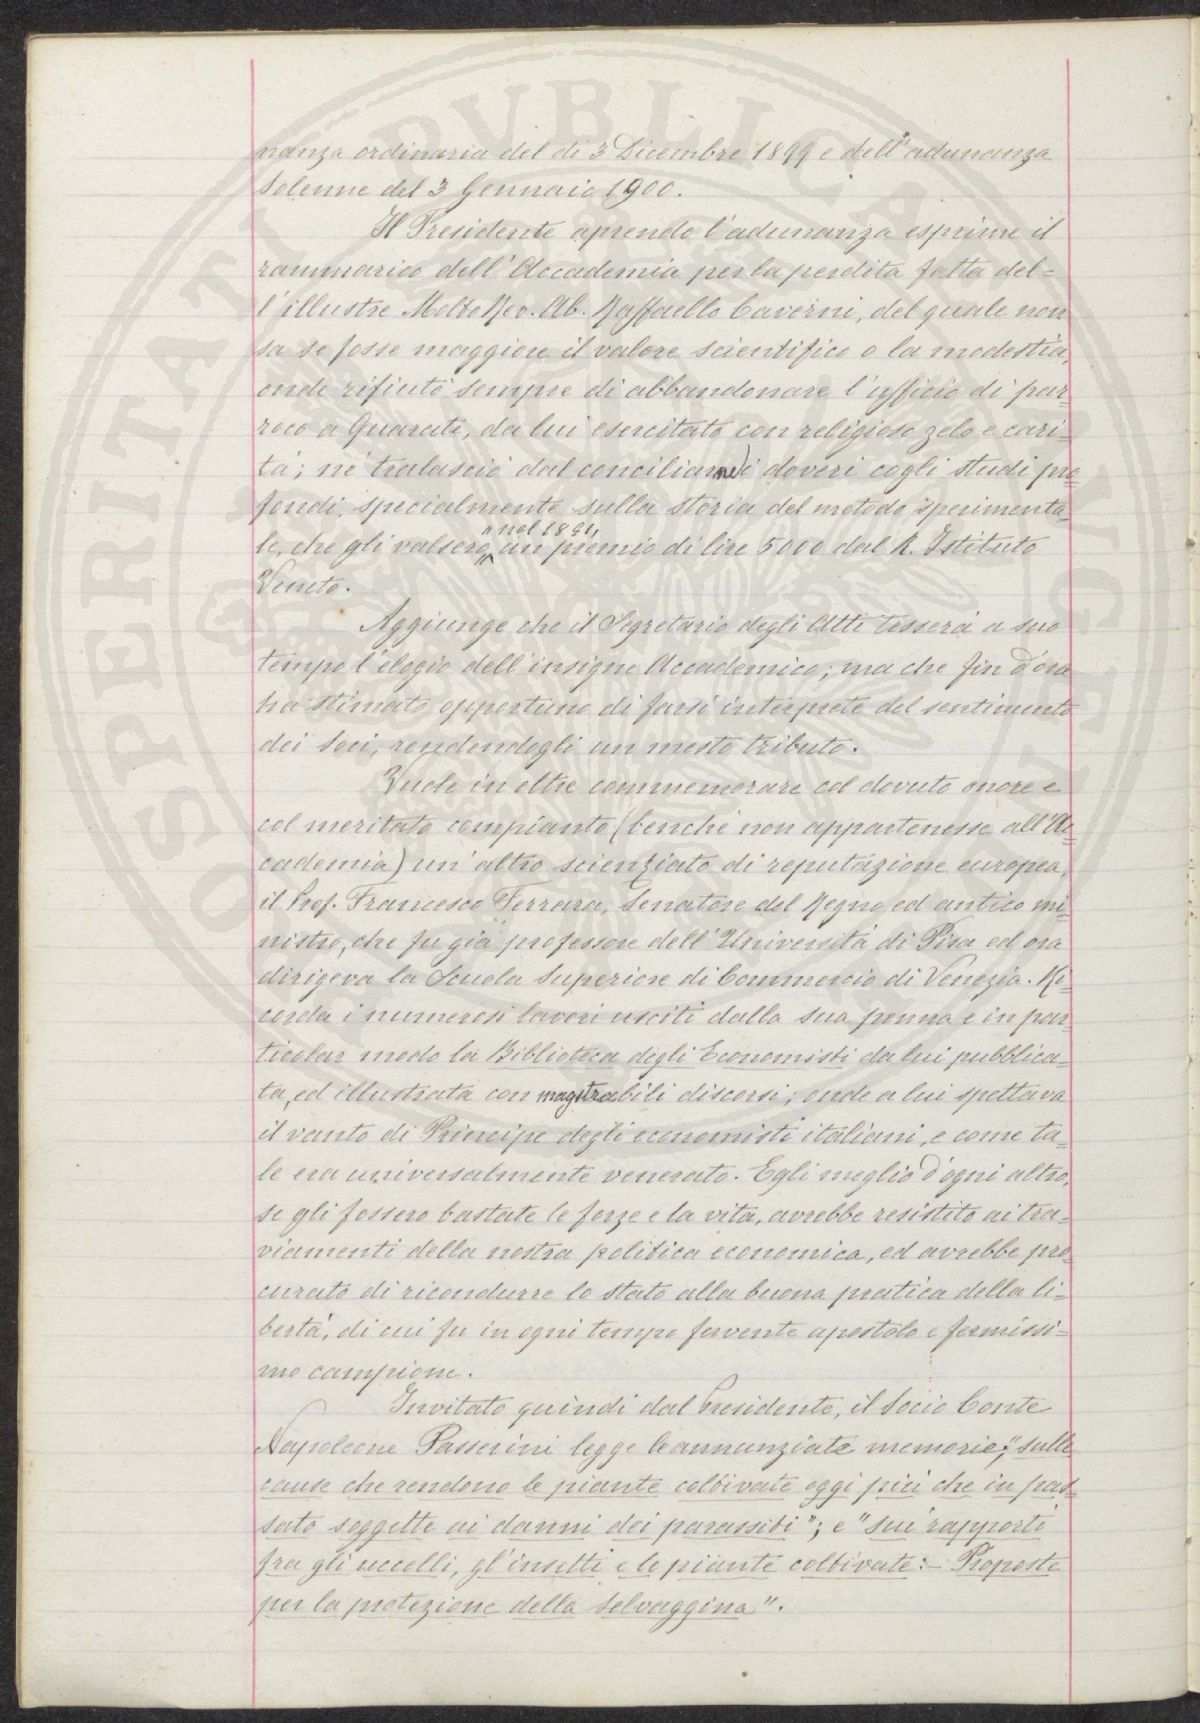 nanza ordinaria del dì 3 Dicembre 1899 e dell'adunanza
Solenne del 3 Gennaio 1900.
Il Presidente aprendo l'adunanza esprime il
rammarico dell'Accademia per la perdita fatta del=
l'illustre Molto Rev. Ab. Raffaello Caverni, del quale non
sa se fosse maggiore il valore scientifico o la modestia,
onde rifiutò sempre di abbandonare l'ufficio di par=
roco a Quarate, da lui esercitato con religioso zelo e cari=
tà; nè tralasciò dal conciliarne i doveri cogli studi pro
fondi, specialmente sulla storia del metodo sperimenta=
le, che gli valsero, nel 1891, un premio di lire 5000 dal R. Istituto
Veneto.
Aggiunge che il Segretario degli Atti tesserà a suo
tempo l'elogio dell'insigne Accademico; ma che fin d'ora
ha stimato opportuno di farsi interprete del sentimento
dei Soci, rendendogli un mesto tributo.
Vuole in oltre commemorare col dovuto onore e
col meritato compianto (benchè non appartenesse all'Ac=
cademia) un'altro scienziato di reputazione europea,
il Prof. Francesco Ferrara, Senatore del Regno ed antico mi=
nistro, che fu già professore dell'Università di Pisa ed ora
dirigeva la Scuola Superiore di Commercio di Venezia. Ri=
corda i numerosi lavori usciti dalla sua penna e in par=
ticolar modo la Biblioteca degli Economisti da lui pubblica=
ta, ed illustrata con discorsi; onde a lui spettava
il vanto di Principe degli economisti italiani, e come ta=
le era universalmente venerato. Egli meglio d'ogni altro,
se gli fossero bastate le forze e la vita, avrebbe resistito ai tra=
viamenti della nostra politica economica, ed avrebbe pro=
curato di ricondurre lo Stato alla buona pratica della li=
bertà, di cui fu in ogni tempo fervente apostolo e fermissi=
mo campione.
Invitato quindi dal Presidente, il Socio Conte
Napoleone Passerini legge le annunziate memorie: "Sulle
cause che rendono le piante coltivate oggi più che in pas=
sato soggette ai danni dei parassiti"; e "Sui rapporti
fra gli uccelli, gl'insetti e le piante coltivate: – Proposte
per la protezione della Selvaggina".
OSPERITATI PVBLICAE AVGENDAE